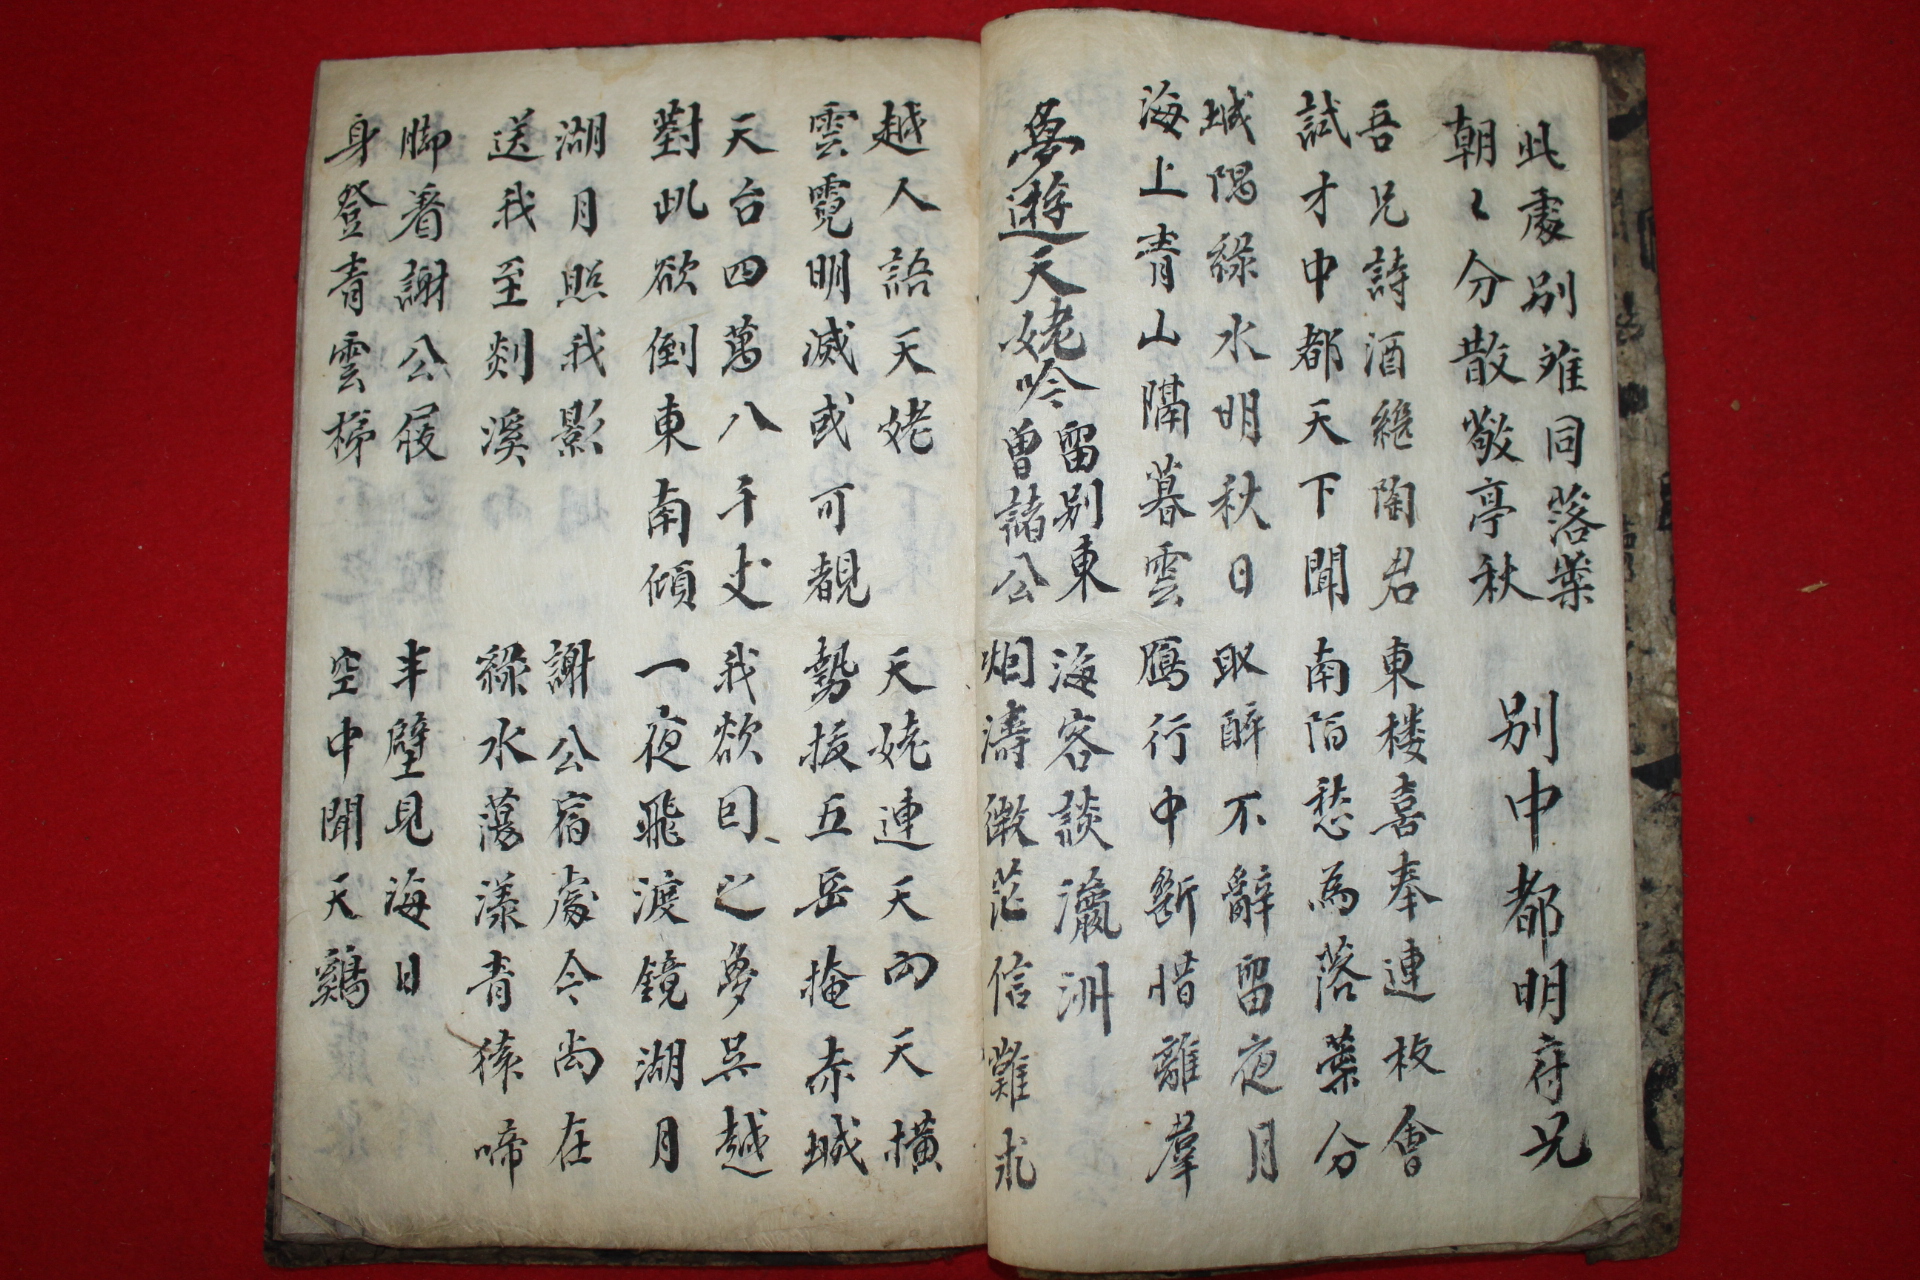 此處別难同落葉
朝〻分散敬亭秋
別中都明府兄
吾兄詩酒繼陶君
試才中都天下聞
東楼喜奉連枚會
南陌愁為落葉分
城隅綠水明秋日
海上青山隔暮雲
取醉不辭留夜月
鴈行中斷惜離羣
夢遊天姥吟
留別東
曾諸公
海客談瀛洲
烟濤微茫信難求
越人語天姥
雲霓明滅或可覩
天姥連天向天橫
勢拔五岳掩赤城
天台四萬八千丈
對此欲倒東南傾
我欲因之夢吳越
一夜飛渡鏡湖月
湖月照我影
送我至剡溪
謝公宿處今尚在
綠水蕩漾青猿啼
脚着謝公屐
身登青雲梯
半壁見海日
空中聞天鷄